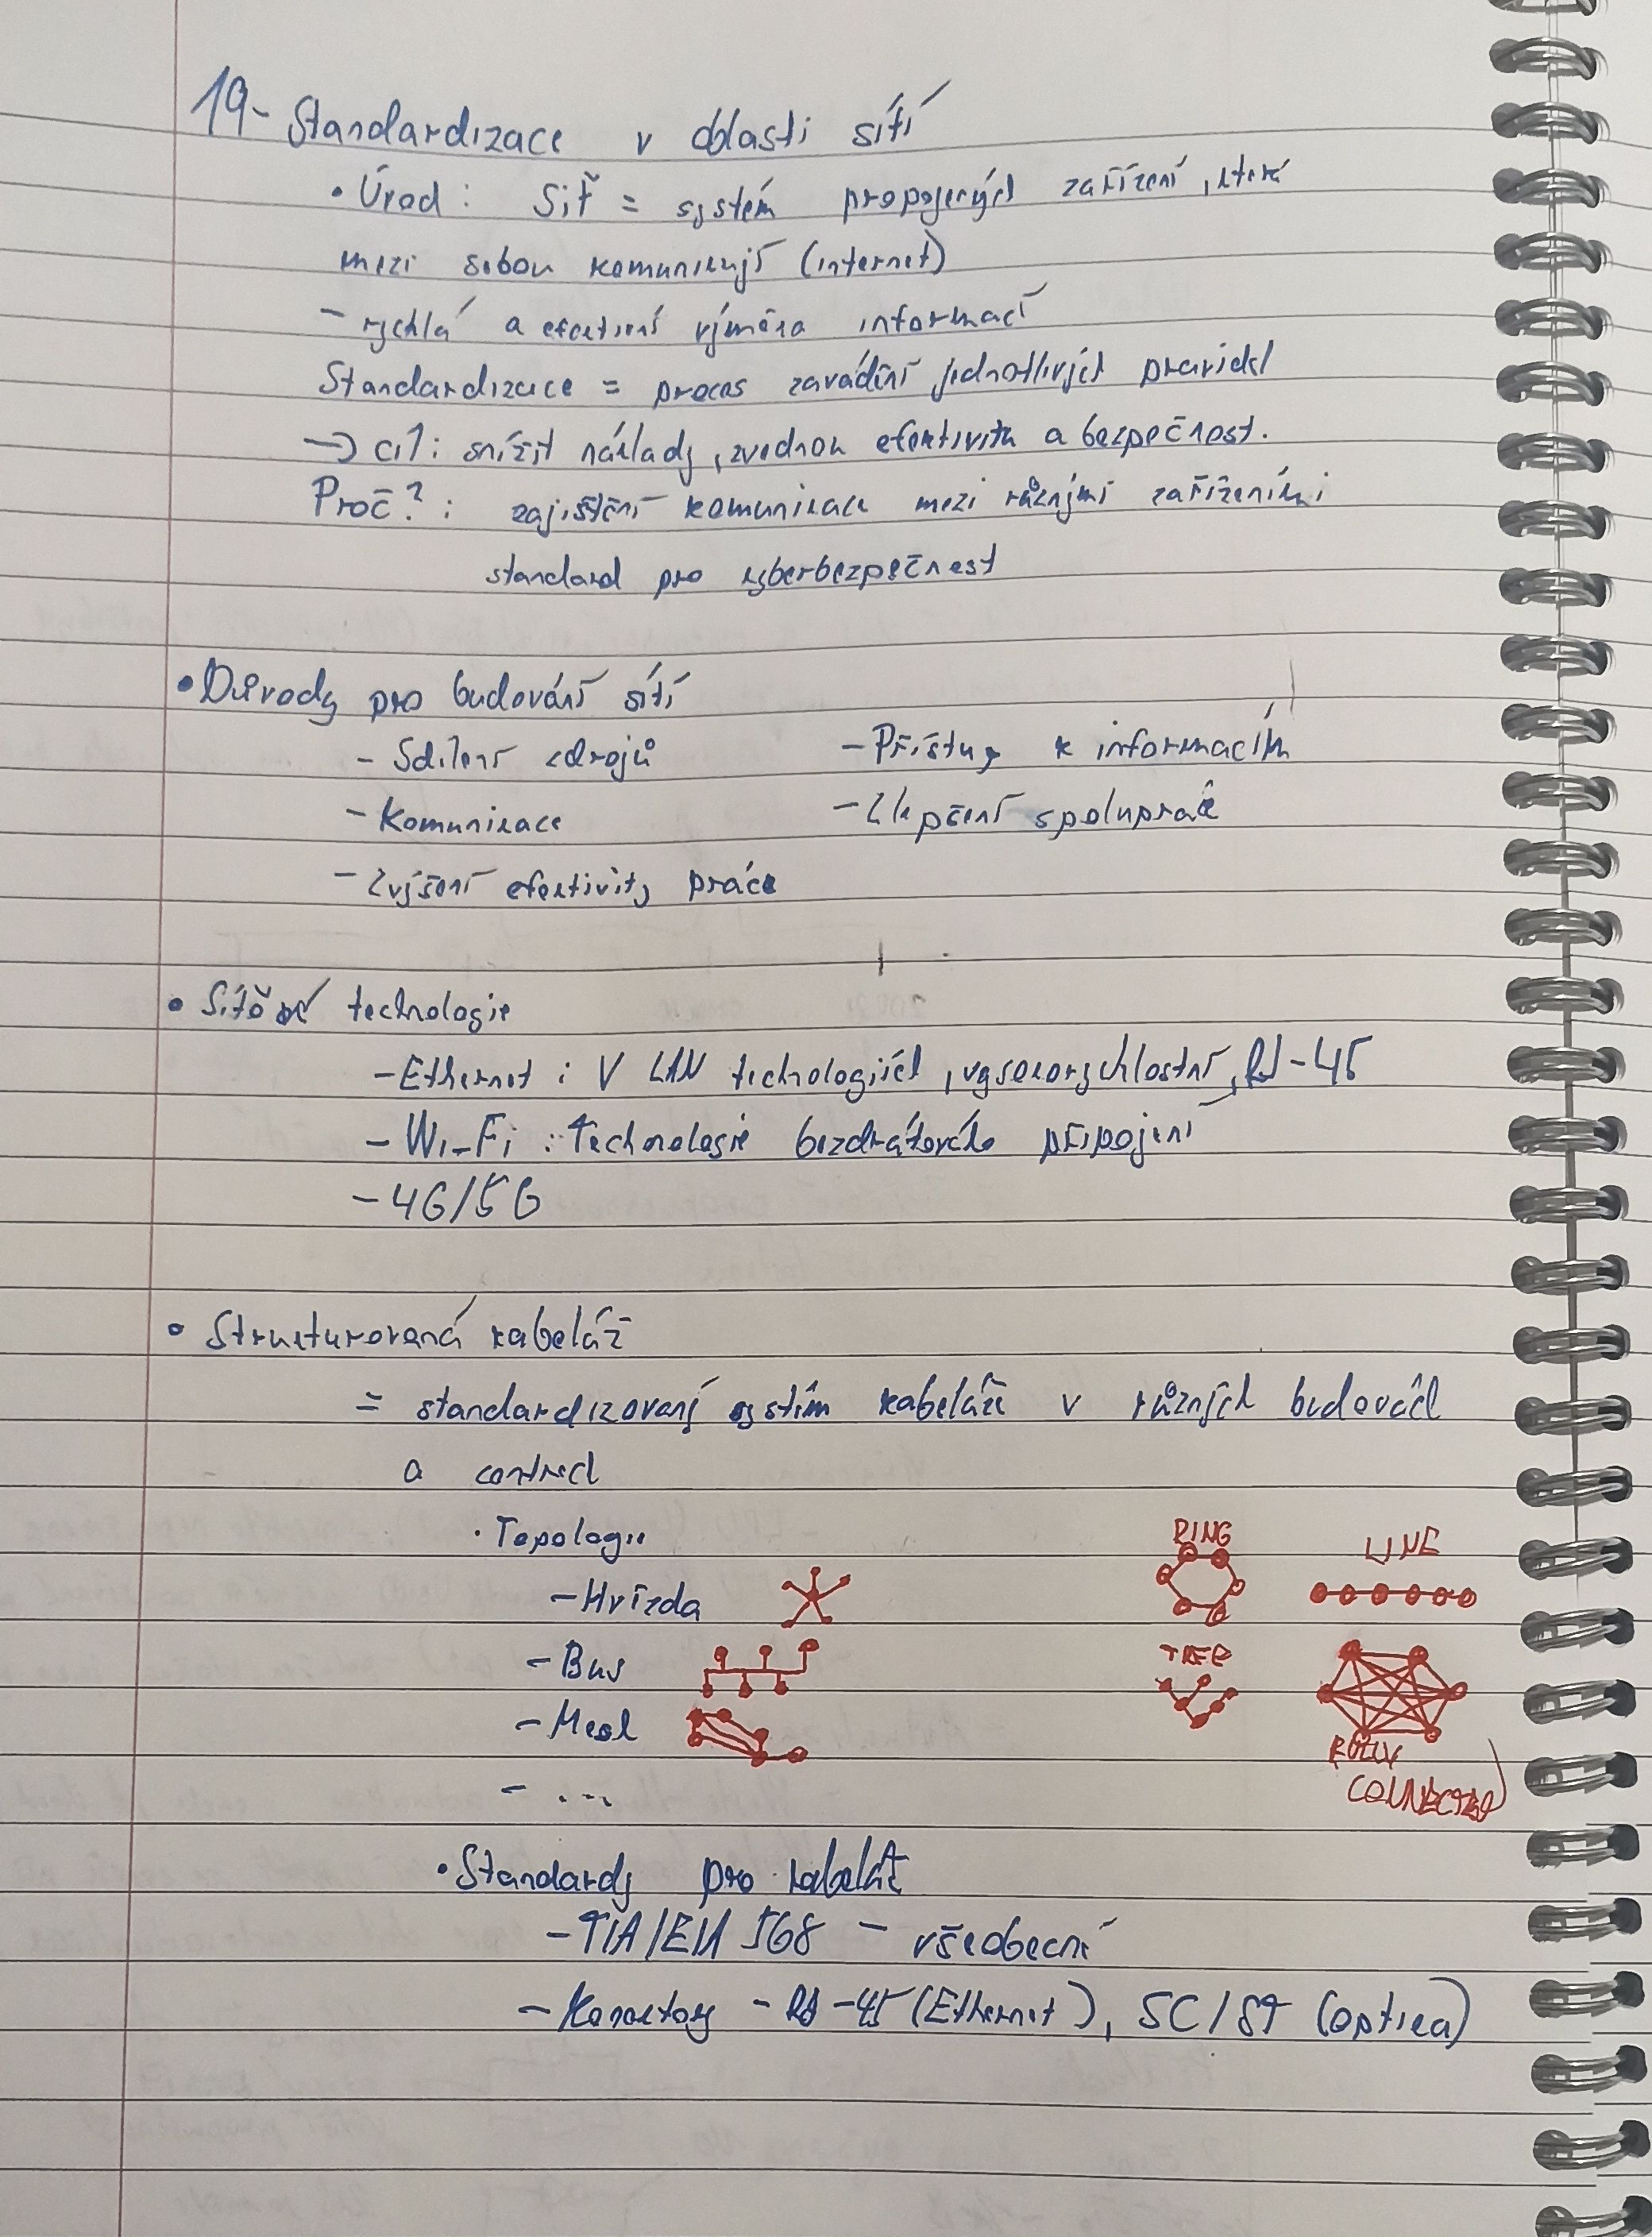 19- Standardizace v oblasti sítí
• Úvod: Síť = systém propojených zařízení, které
mezi sebou komunikují (internet)
- rychlá a efektivní výměna informací
Standardizace = proces zavádění jednotlivých pravidel
→ cíl: snížit náklady, zvednou efektivitu a bezpečnost.
Proč? : zajištění komunikace mezi různými zařízeními
standard pro kyberbezpečnost
• Důvody pro budování sítí
- Sdílení zdrojů - Přístup k informacím
- Komunikace - Zlepšení spolupráce
- Zvýšení efektivity práce
• Síťové technologie
- Ethernet : V LAN technologiích, vysokorychlostní, RJ-45
- Wi-Fi : Technologie bezdrátového připojení
- 4G/5G
• Strukturovaná kabeláž
= standardizovaný systém kabeláže v různých budovách
a centrech
• Topologie
RING LINE
- Hvězda
- Bus TREE
- Mesh
FULLY
CONNECTED
- ...
• Standardy pro kabeláž
- TIA/EIA 568 - všeobecní
- Konektory - RJ-45 (Ethernet), SC/ST (optika)